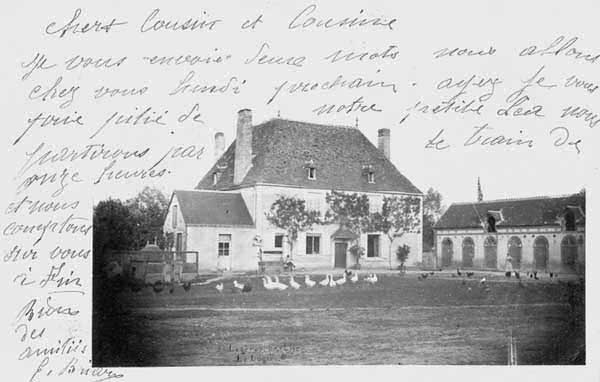 chers Cousin et Cousine
Je vous envoie deux mots nous allons
chez vous lundi prochain. ayez je vous
prie pitié de notre petite Léa nous
partirons par le train de
onze heures.
et nous
comptons
sur vous
à
Bien
des
amitiés